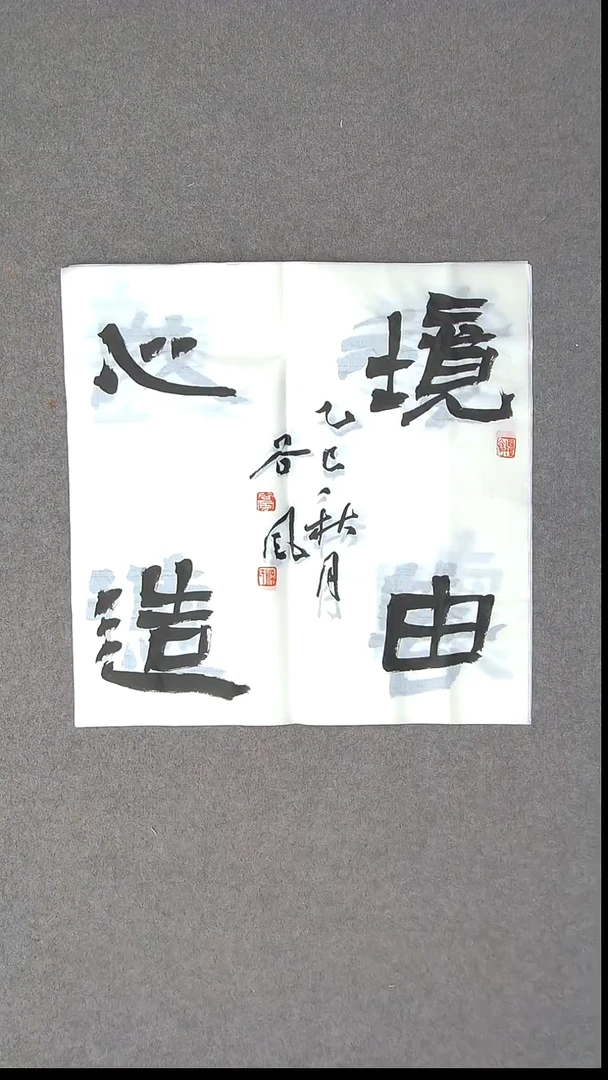 境由
心造
乙巳秋月
谷風